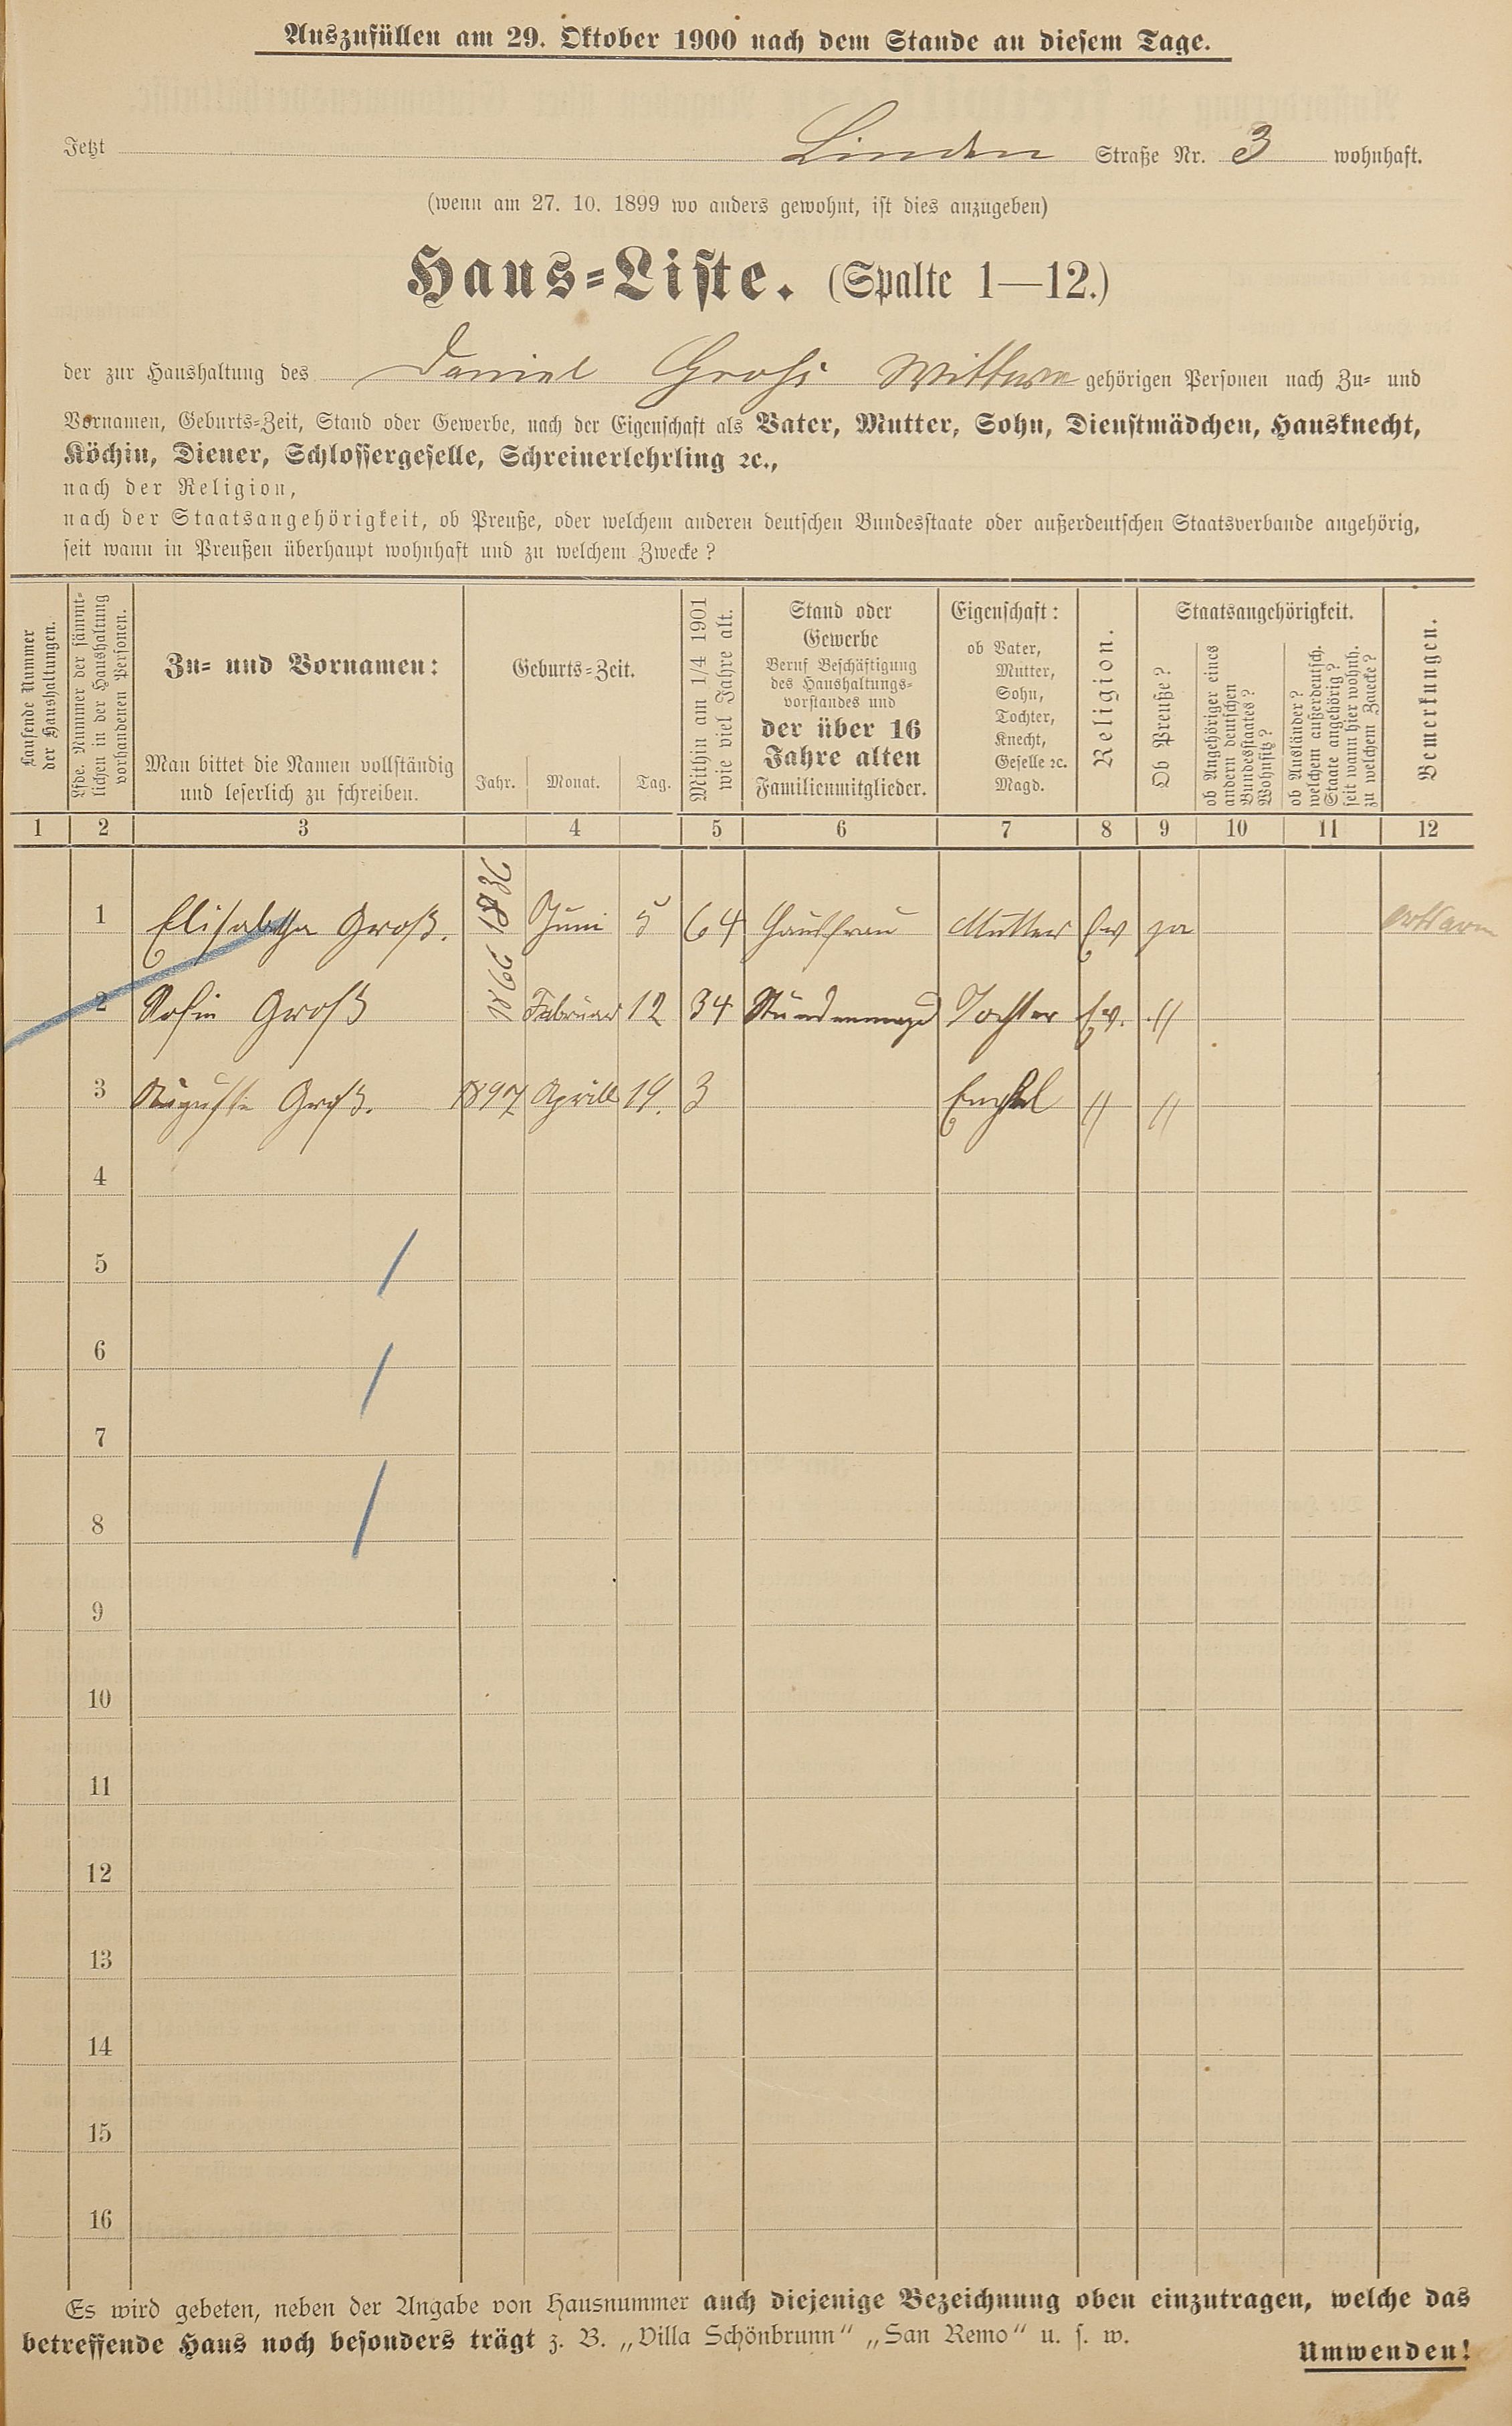 Auszufüllen am 29. Oktober 1900 nach dem Stande an diesem Tage.
Jetzt Linden Straße Nr. 3 wohnhaft.
(wenn am 27. 10. 1899 wo anders gewohnt, ist dies anzugeben)
Haus-Liste. (Spalte 1—12.)
der zur Haushaltung des Daniel Groß Wittwe gehörigen Personen nach Zu- und
Vornamen, Geburts-Zeit, Stand oder Gewerbe, nach der Eigenschaft als Vater, Mutter, Sohn, Dienstmädchen, Hausknecht,
Köchin, Diener, Schlossergeselle, Schreinerlehrling ꝛc.,
nach der Religion,
nach der Staatsangehörigkeit, ob Preuße, oder welchem anderen deutschen Bundesstaate oder außerdeutschen Staatsverbande angehörig,
seit wann in Preußen überhaupt wohnhaft und zu welchem Zwecke?
Laufende Nummer
der Haushaltungen.
Lfde. Nummer der sämmt-
lichen in der Haushaltung
vorhandenen Personen.
Zu- und Vornamen:
Man bittet die Namen vollständig
und leserlich zu schreiben.
Geburts-Zeit.
Jahr. Monat. Tag.
Mithin am 1/4 1901
wie viel Jahre alt.
Stand oder
Gewerbe
Beruf Beschäftigung
des Haushaltungs-
vorstandes und
der über 16
Jahre alten
Familienmitglieder.
Eigenschaft:
ob Vater,
Mutter,
Sohn,
Tochter,
Knecht,
Geselle ꝛc.
Magd.
Religion.
Staatsangehörigkeit.
Ob Preuße?
ob Angehöriger eines
andern deutschen
Bundesstaates?
Wohnsitz?
ob Ausländer?
welchem außerdeutsch.
Staate angehörig?
seit wann hier wohnh.
zu welchem Zwecke?
Bemerkungen.
1 2 3 4 5 6 7 8 9 10 11 12
1 Elisabetha Groß. 1836 Juni 5 64 Hausfrau Mutter Ev ja
2 Rosin Groß 1866 Februar 12 34 Tochter Ev. "
3 Auguste Groß. 1897 Aprill 19. 3 Enkel " "
4
5
6
7
8
9
10
11
12
13
14
15
16
Es wird gebeten, neben der Angabe von Hausnummer auch diejenige Bezeichnung oben einzutragen, welche das
betreffende Haus noch besonders trägt z. B. „Villa Schönbrunn“ „San Remo“ u. s. w.
Umwenden!